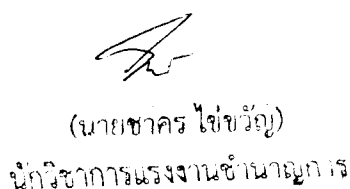 (นายชาคร ไข่ขวัญ)
นักวิชาการแรงงานชำนาญการ